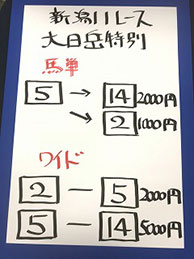 新潟11レース
大日岳特別
馬単
5 → 14 2000円
→ 2 1000円
ワイド
2 — 5 2000円
5 — 14 5000円